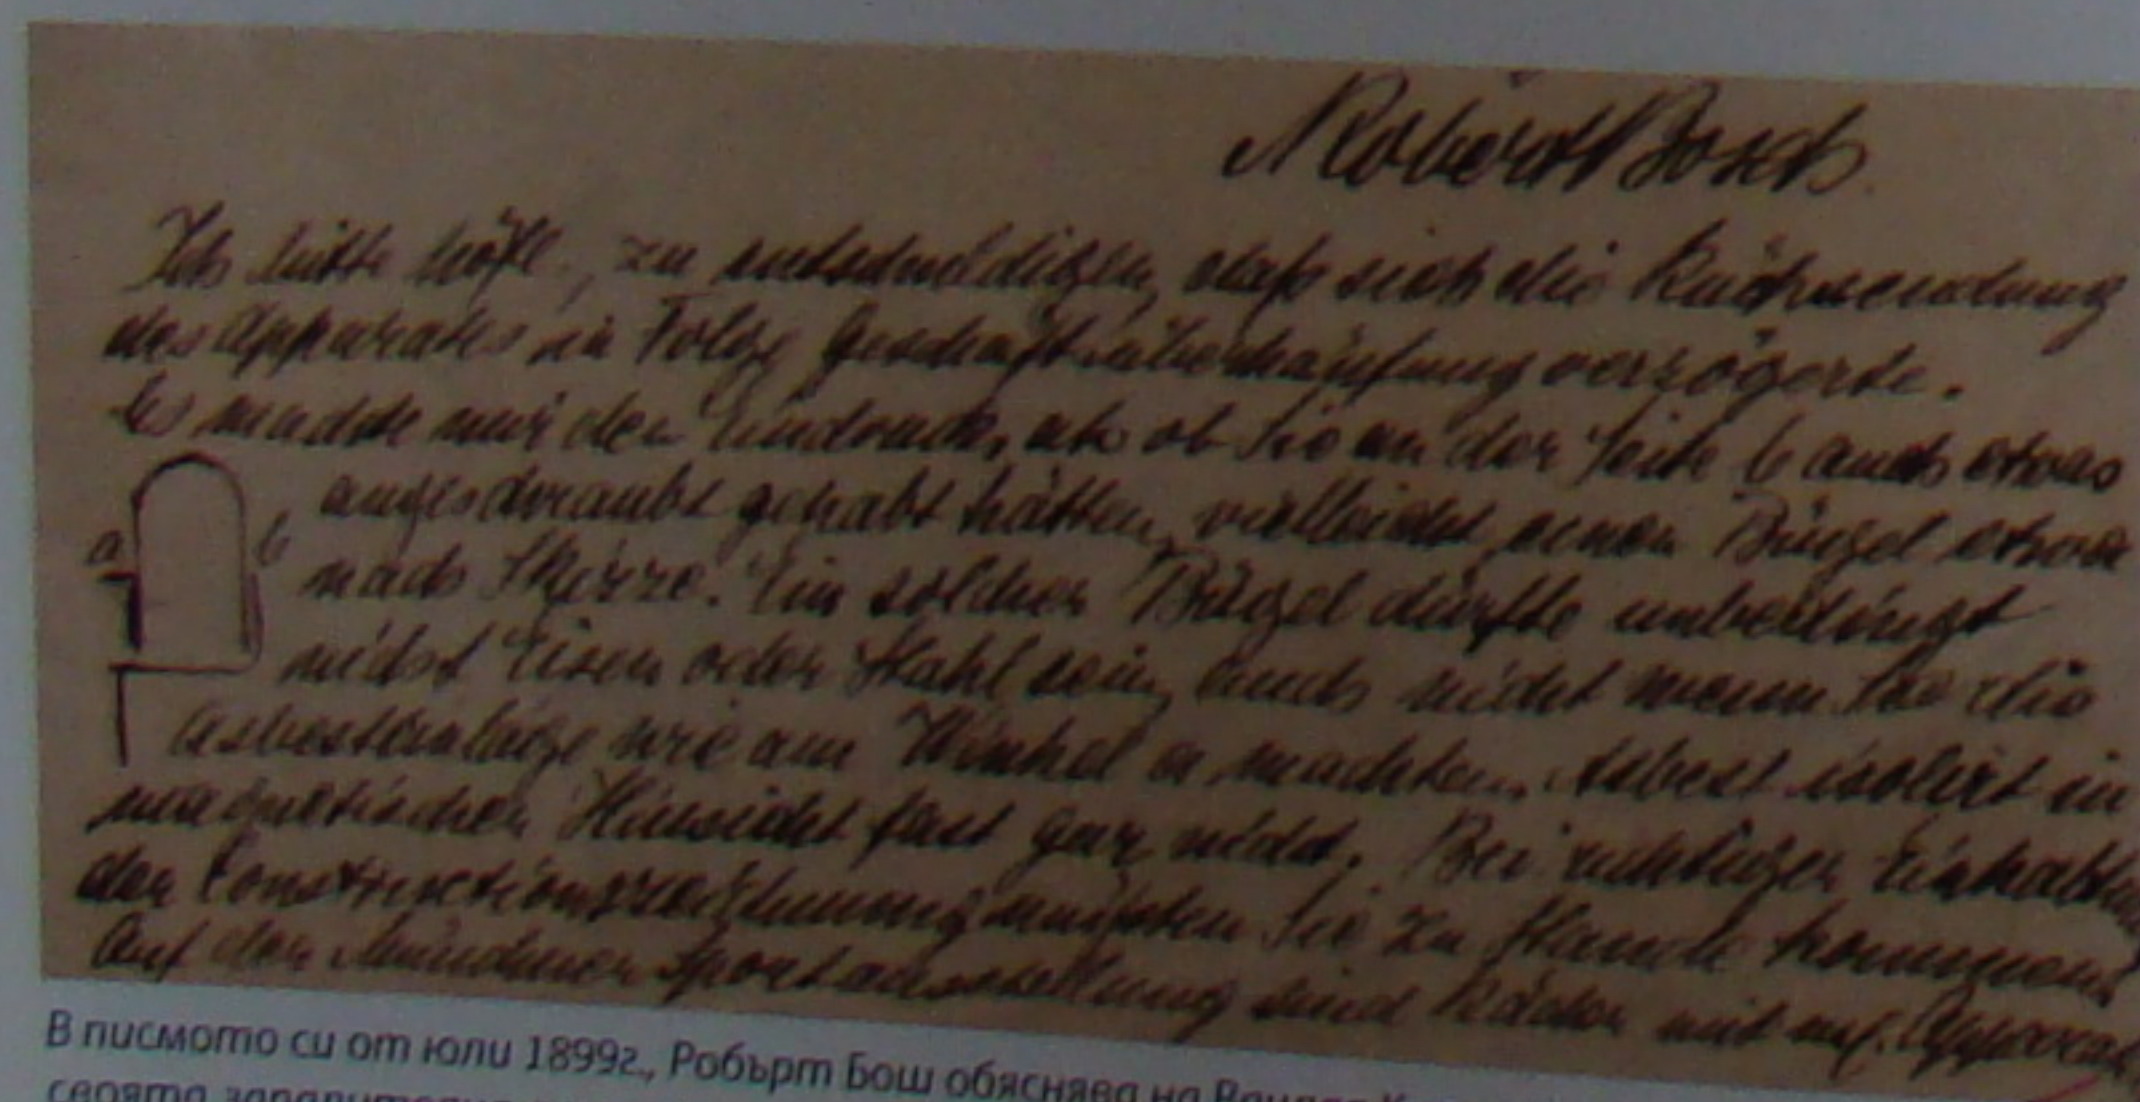 Robert Bosch.
Ich bitte höfl., zu entschuldigen, daß sich die Rücksendung
des Apparates in Folge Geschäftsüberhäufung verzögerte.
Es machte mir den Eindruck, als ob Sie an der Seite b auch etwas
angeschraubt gehabt hätten, vielleicht einen Bügel etwa
a b
nach Skizze. Ein solcher Bügel dürfte unbedingt
nicht Eisen oder Stahl sein, auch nicht wenn Sie die
Asbesteinlage wie am Winkel a machten. Asbest isolirt in
magnetischer Hinsicht fast gar nicht. Bei richtiger
der Constructionszeichnung müßten Sie zu Stande kommen.
Auf der Münchner Sportausstellung sind Räder mit
В писмото си от юли 1899г., Робърт Бош обяснява на
своята